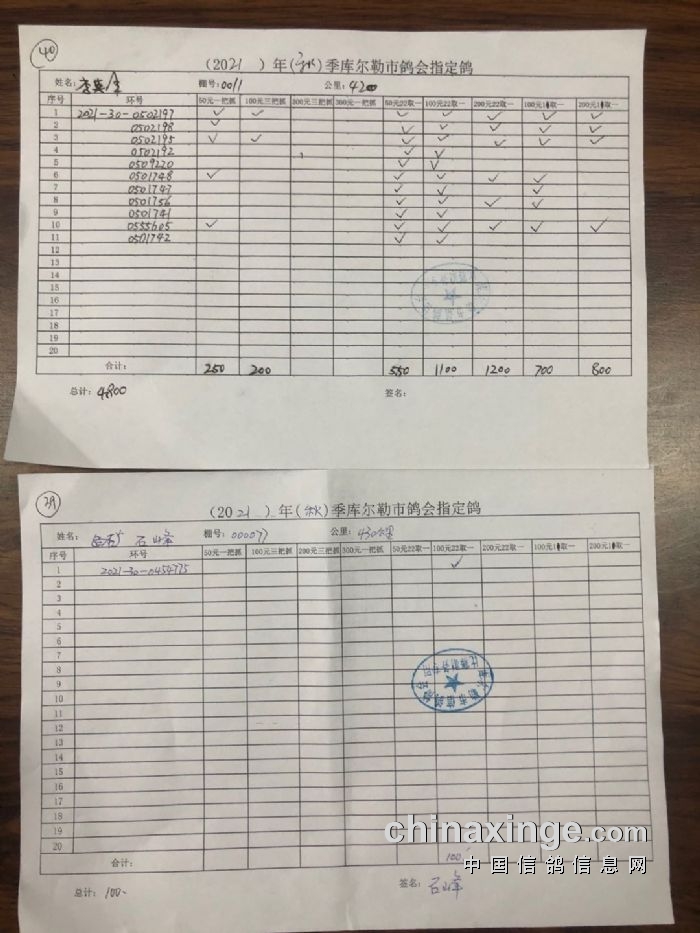 40
(2021 )年(秋)季库尔勒市鸽会指定鸽
姓名: 棚号:0011 公里:420
序号 环号 50元一把抓 100元三把抓 200元三把抓 300元一把抓 50元22取一 100元22取一 200元22取一 100元10取一 200元10取一
1 2021-30-0502197 ✓ ✓ ✓ ✓ ✓ ✓ ✓
2 0502198 ✓ ✓ ✓ ✓ ✓ ✓
3 0502195 ✓ ✓ ✓ ✓ ✓ ✓ ✓
4 0502192 ✓ ✓
5 0509220 ✓ ✓
6 0501748 ✓ ✓ ✓ ✓ ✓
7 0501747 ✓ ✓ ✓
8 0501756 ✓ ✓ ✓ ✓
9 0501741 ✓ ✓
10 0555605 ✓ ✓ ✓ ✓ ✓ ✓
11 0501742 ✓ ✓
12
13
14
15
16
17
18
19
20
合计: 250 200 550 1100 1200 700 800
总计: 4800 签名:
39
(2021 )年(秋)季库尔勒市鸽会指定鸽
姓名: 石峰 棚号:000077 公里:430公里
序号 环号 50元一把抓 100元三把抓 200元三把抓 300元一把抓 50元22取一 100元22取一 200元22取一 100元10取一 200元10取一
1 2021-30-0454775 ✓
2
3
4
5
6
7
8
9
10
11
12
13
14
15
16
17
18
19
20
合计: 100
总计: 100- 签名: 石峰
库尔勒市信鸽协会
chinaxinge.com
中国信鸽信息网